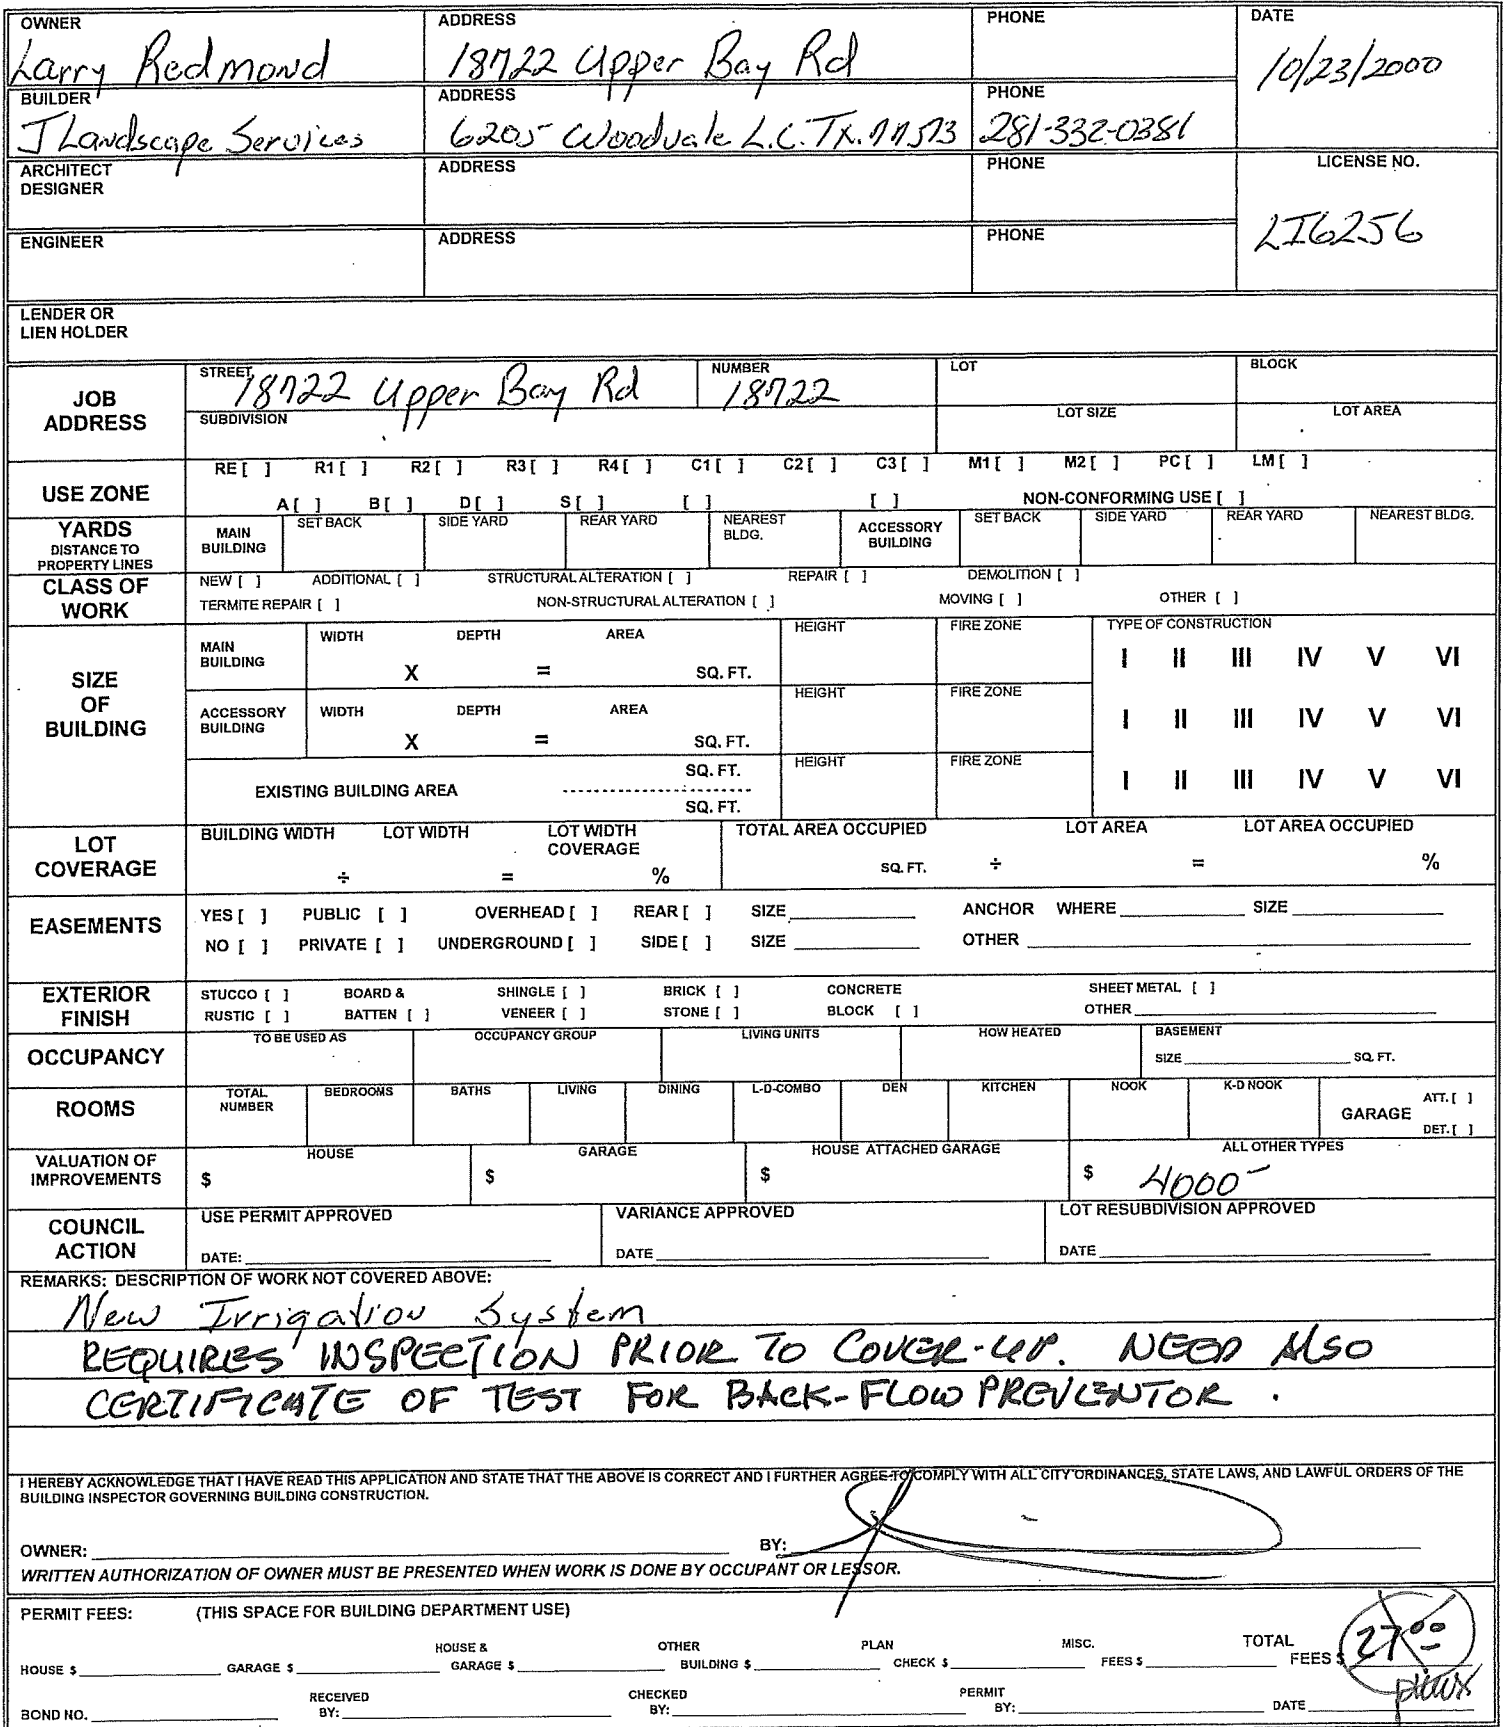 OWNER ADDRESS PHONE DATE
Larry Redmond 18722 Upper Bay Rd 10/23/2000
BUILDER ADDRESS PHONE
J Landscape Services 6205 Woodvale L.C. TX. 77573 281-332-0381
ARCHITECT ADDRESS PHONE LICENSE NO.
DESIGNER
LI6256
ENGINEER ADDRESS PHONE
LENDER OR
LIEN HOLDER
JOB ADDRESS
STREET 18722 Upper Bay Rd NUMBER 18722 LOT BLOCK
SUBDIVISION LOT SIZE LOT AREA
USE ZONE
RE [ ] R1 [ ] R2 [ ] R3 [ ] R4 [ ] C1 [ ] C2 [ ] C3 [ ] M1 [ ] M2 [ ] PC [ ] LM [ ]
A [ ] B [ ] D [ ] S [ ] [ ] [ ] NON-CONFORMING USE [ ]
YARDS
DISTANCE TO
PROPERTY LINES
MAIN BUILDING SET BACK SIDE YARD REAR YARD NEAREST BLDG. ACCESSORY BUILDING SET BACK SIDE YARD REAR YARD NEAREST BLDG.
CLASS OF WORK
NEW [ ] ADDITIONAL [ ] STRUCTURAL ALTERATION [ ] REPAIR [ ] DEMOLITION [ ]
TERMITE REPAIR [ ] NON-STRUCTURAL ALTERATION [ ] MOVING [ ] OTHER [ ]
SIZE OF BUILDING
MAIN BUILDING WIDTH DEPTH AREA HEIGHT FIRE ZONE TYPE OF CONSTRUCTION
X = SQ. FT. I II III IV V VI
ACCESSORY BUILDING WIDTH DEPTH AREA HEIGHT FIRE ZONE
X = SQ. FT. I II III IV V VI
EXISTING BUILDING AREA SQ. FT. HEIGHT FIRE ZONE
SQ. FT. I II III IV V VI
LOT COVERAGE
BUILDING WIDTH LOT WIDTH LOT WIDTH COVERAGE TOTAL AREA OCCUPIED LOT AREA LOT AREA OCCUPIED
÷ = % SQ. FT. ÷ = %
EASEMENTS
YES [ ] PUBLIC [ ] OVERHEAD [ ] REAR [ ] SIZE ANCHOR WHERE SIZE
NO [ ] PRIVATE [ ] UNDERGROUND [ ] SIDE [ ] SIZE OTHER
EXTERIOR FINISH
STUCCO [ ] BOARD & SHINGLE [ ] BRICK [ ] CONCRETE SHEET METAL [ ]
RUSTIC [ ] BATTEN [ ] VENEER [ ] STONE [ ] BLOCK [ ] OTHER
OCCUPANCY
TO BE USED AS OCCUPANCY GROUP LIVING UNITS HOW HEATED BASEMENT
SIZE SQ. FT.
ROOMS
TOTAL NUMBER BEDROOMS BATHS LIVING DINING L-D-COMBO DEN KITCHEN NOOK K-D NOOK GARAGE ATT. [ ]
DET. [ ]
VALUATION OF IMPROVEMENTS
HOUSE GARAGE HOUSE ATTACHED GARAGE ALL OTHER TYPES
$ $ $ $ 4000-
COUNCIL ACTION
USE PERMIT APPROVED VARIANCE APPROVED LOT RESUBDIVISION APPROVED
DATE: DATE DATE
REMARKS: DESCRIPTION OF WORK NOT COVERED ABOVE:
New Irrigation System
REQUIRES INSPECTION PRIOR TO COVER-UP. NEED ALSO
CERTIFICATE OF TEST FOR BACK-FLOW PREVENTOR.
I HEREBY ACKNOWLEDGE THAT I HAVE READ THIS APPLICATION AND STATE THAT THE ABOVE IS CORRECT AND I FURTHER AGREE TO COMPLY WITH ALL CITY ORDINANCES, STATE LAWS, AND LAWFUL ORDERS OF THE
BUILDING INSPECTOR GOVERNING BUILDING CONSTRUCTION.
OWNER: BY:
WRITTEN AUTHORIZATION OF OWNER MUST BE PRESENTED WHEN WORK IS DONE BY OCCUPANT OR LESSOR.
PERMIT FEES: (THIS SPACE FOR BUILDING DEPARTMENT USE)
HOUSE $ GARAGE $ HOUSE & GARAGE $ OTHER BUILDING $ PLAN CHECK $ MISC. FEES $ TOTAL FEES $ 27.00
BOND NO. RECEIVED BY: CHECKED BY: PERMIT BY: DATE